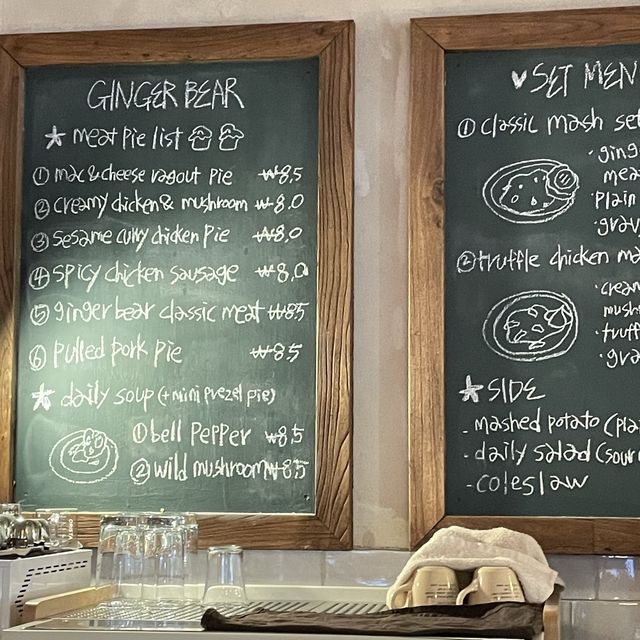 GINGER BEAR
★ meat pie list
① mac & cheese ragout pie ₩8.5
② creamy chicken & mushroom ₩8.0
③ sesame curry chicken pie ₩8.0
④ spicy chicken sausage ₩8.0
⑤ ginger bear classic meat ₩8.5
⑥ pulled pork pie ₩8.5
★ daily soup (+mini prezel pie)
① bell pepper ₩8.5
② wild mushroom ₩8.5
♥ SET MEN
① classic mash set
· ging
mea
· plain
· grav
② truffle chicken ma
· cream
mush
· truff
· gra
★ SIDE
- mashed potato (plai
- daily salad (sour
- coleslaw